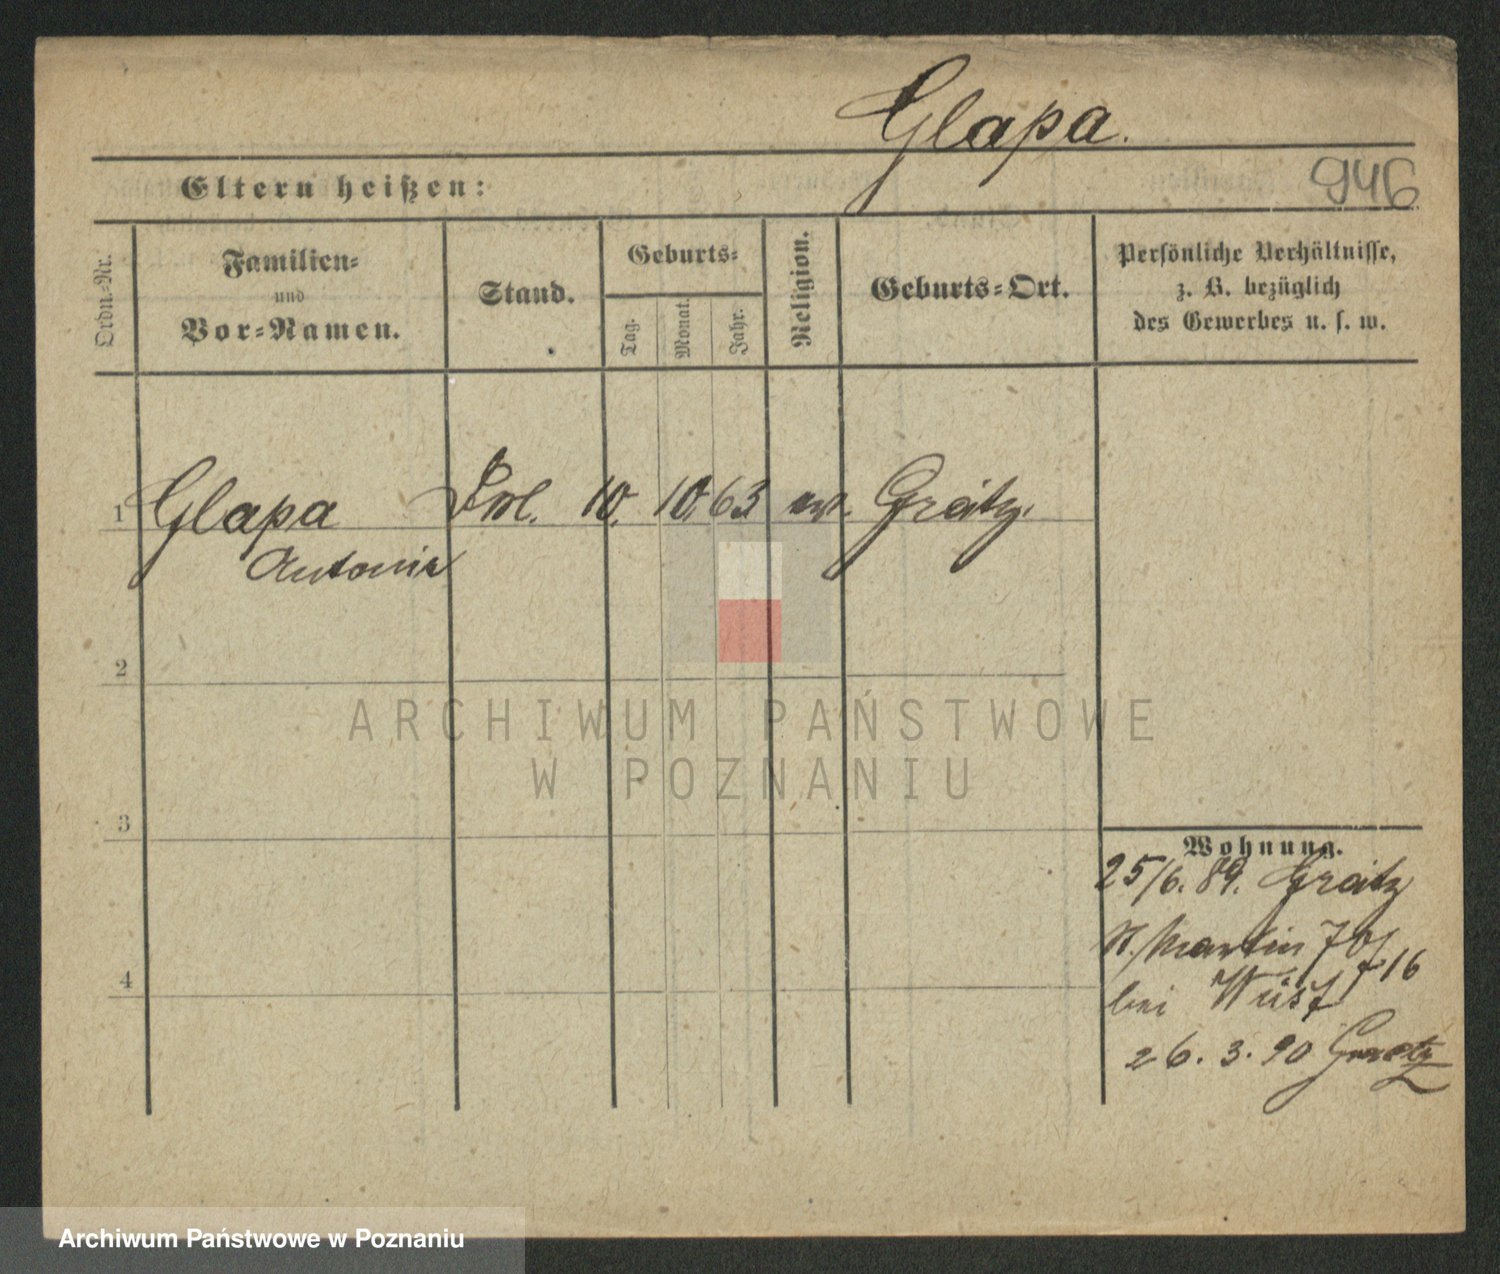 Glapa.
946
Eltern heißen:
Ordn.-Nr.
Familien-
und
Vor-Namen.
Stand.
Geburts-
Tag.
Monat.
Jahr.
Religion.
Geburts-Ort.
Persönliche Verhältnisse,
z. B. bezüglich
des Gewerbes u. s. w.
1 Glapa 10. 10. 63 Graetz.
Antonie
2
3
4
Wohnung.
25/6. 89. Graetz
St. Martin
bei
26. 3. 90 Graetz
ARCHIWUM PAŃSTWOWE
W POZNANIU
Archiwum Państwowe w Poznaniu